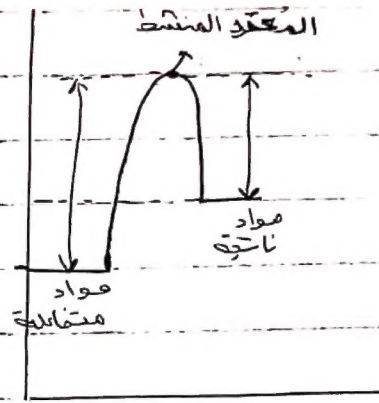 المعقد المنشط
مواد
ناتجة
مواد
متفاعلة